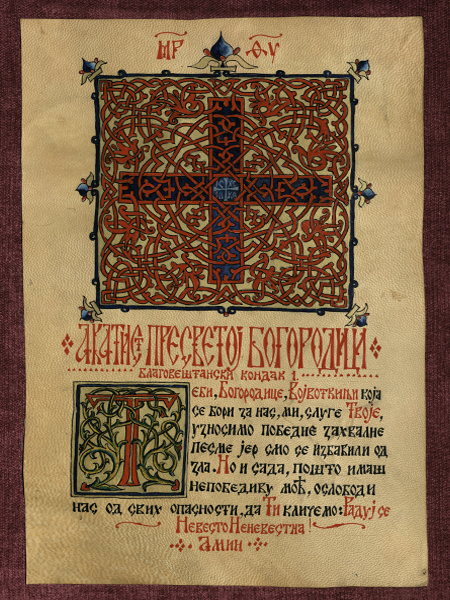 МР ѲУ
АКАТИСТ ПРЕСВЕТОЈ БОГОРОДИЦИ
БЛАГОВЕШТАНСКИ КОНДАК 1.
Теби, Богородице, Војвоткињи која
се бори за нас, ми, слуге Твоје,
узносимо победне захвалне
песме јер смо се избавили од
зла. Но и сада, пошто имаш
непобедиву моћ, ослободи
нас од свих опасности, да Ти кличемо: Радуј се
Невесто Неневестна!
Амин